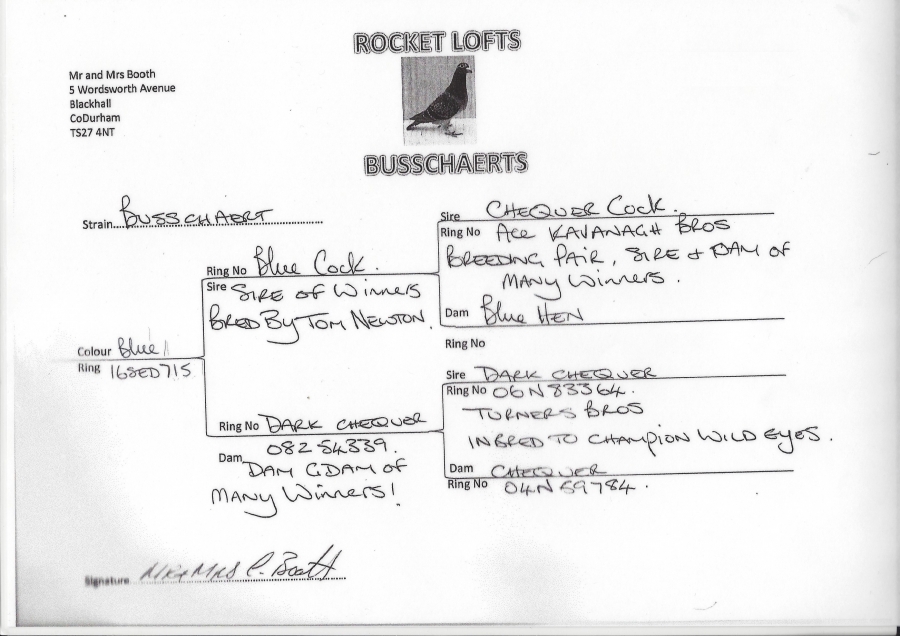 ROCKET LOFTS
Mr and Mrs Booth
5 Wordsworth Avenue
Blackhall
CoDurham
TS27 4NT
BUSSCHAERTS
Strain BUSSCHAERT
Sire CHEQUER COCK.
Ring No ACE KAVANAGH BROS
BREEDING PAIR, SIRE & DAM OF
MANY WINNERS.
Dam Blue HEN
Ring No
Ring No Blue Cock.
Sire SIRE OF WINNERS
BRED BY TOM NEWTON.
Colour Blue
Ring 16SED715
Sire DARK CHEQUER
Ring No 06N83364.
TURNERS BROS
INBRED TO CHAMPION WILD EYES.
Dam CHEQUER
Ring No 04N59784.
Ring No DARK CHEQUER
08254339.
Dam
DAM GDAM OF
MANY WINNERS!
Signature MR & MRS C. Booth